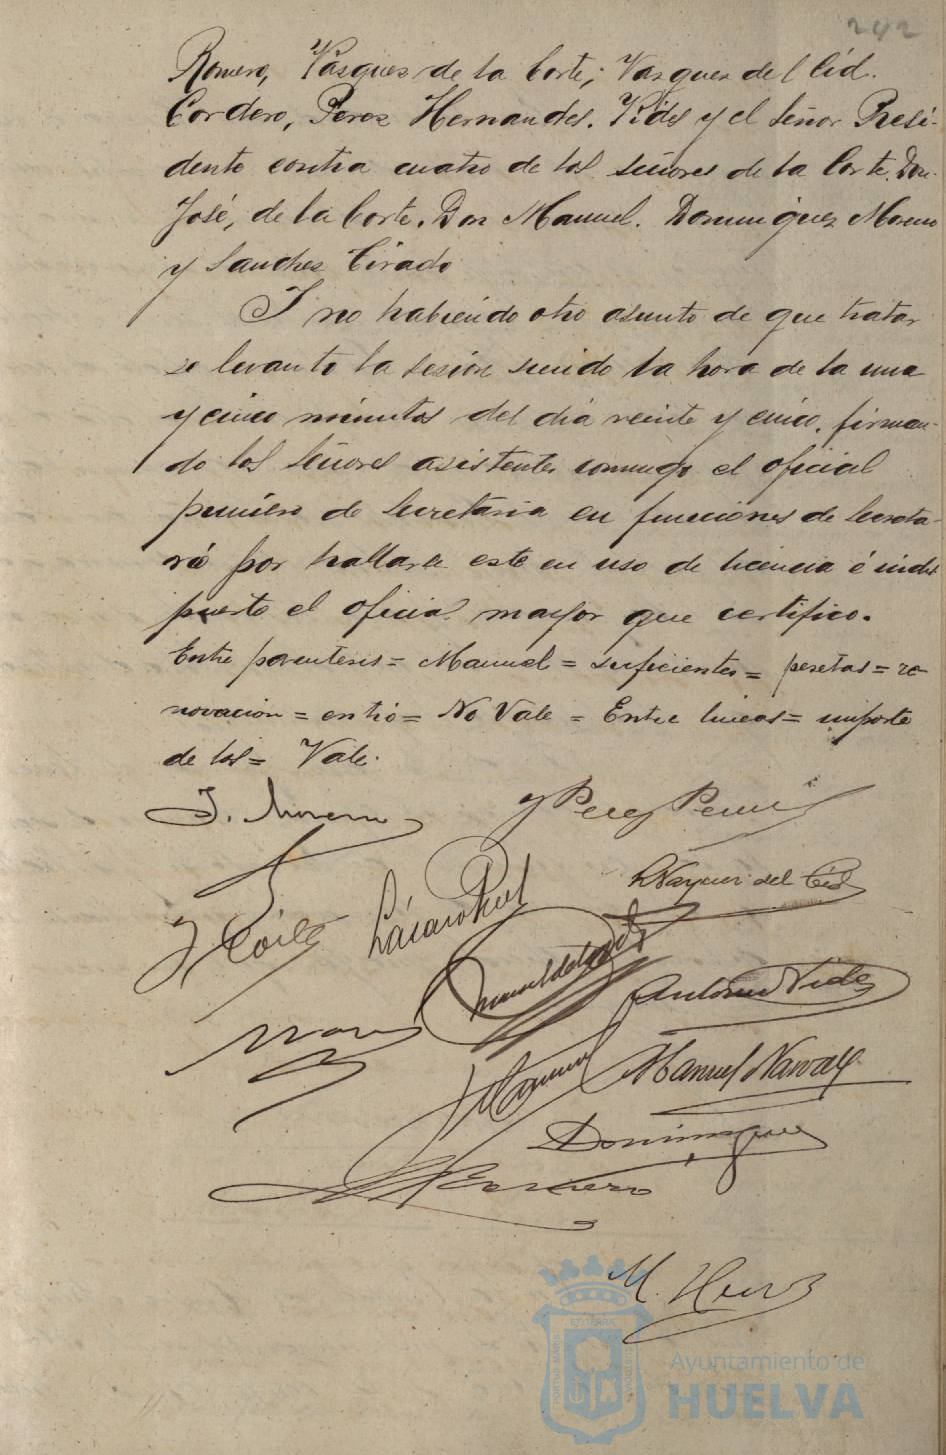 242
Romero, Vasques de la Corte; Vazques del Cid.
Cordero, Perez Hernandes. Vides y el Señor Presi-
dente contra cuatro de los señores de la Corte. Don
José, de la Corte. Don Manuel. Dominguez Moreno
y Sanches Tirado
I no habiendo otro asunto de que tratar
se levantó la sesion siendo la hora de la una
y cinco minutos del dia veinte y cinco. firman-
do los Señores asistentes conmigo el oficial
primero de Secretaria en funciones de Secreta-
rio por hallarse este en uso de licencia é indis
puesto el oficial mayor que certifico.
Entre parentesis = Manuel = suficientes = pesetas = re-
novacion = entró = No Vale = Entre lineas = importe
de los = Vale.
J. Moreno
Perez
Vazquez del Cid
Lázaro
Manuel de la Corte
Antonio Vides
Manuel Navarro
Dominguez
Romero
M.
Ayuntamiento de
HUELVA